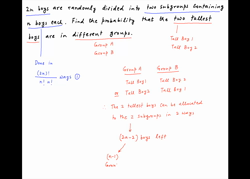 2n boys are randomly divided into two subgroups containing
n boys each. Find the probability that the two tallest
boys are in different groups.
Group A
Group B
Tall Boy 1
Tall Boy 2
Done in
(2n)!
n! n!
ways ①
Group A Group B
Tall Boy 1 Tall Boy 2
Tall Boy 2 Tall Boy 1
∴ The 2 tallest boys can be allocated
to the 2 subgroups in 2 ways
(2n-2) boys left
(n-1)